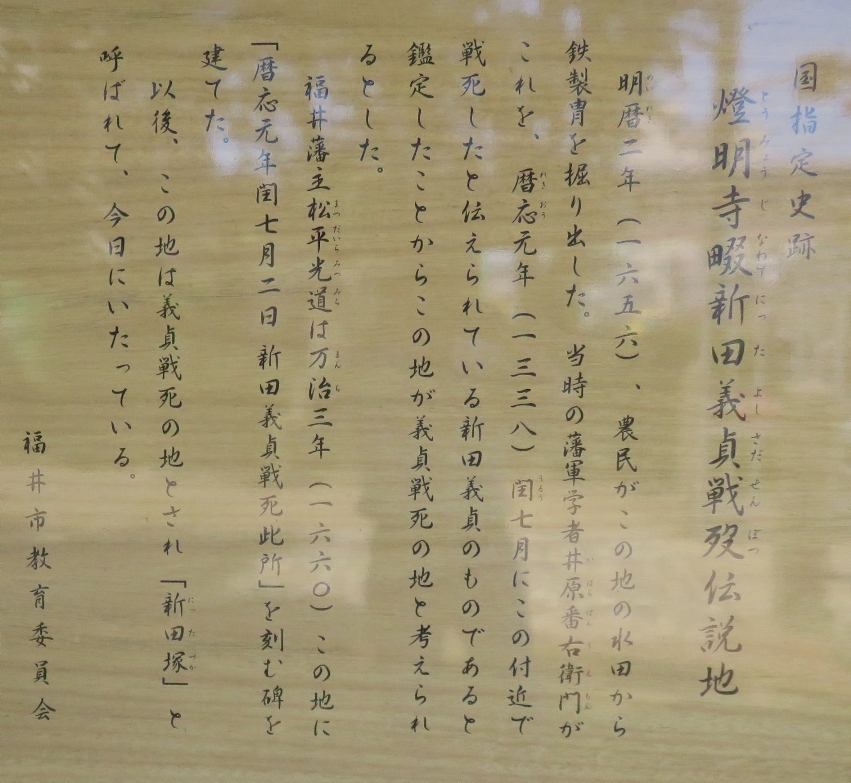 国指定史跡
燈明寺畷新田義貞戦歿伝説地
明暦二年（一六五六）、農民がこの地の水田から
鉄製冑を掘り出した。当時の藩軍学者井原番右衛門が
これを、暦応元年（一三三八）閏七月にこの付近で
戦死したと伝えられている新田義貞のものであると
鑑定したことからこの地が義貞戦死の地と考えられ
るとした。
福井藩主松平光道は万治三年（一六六〇）この地に
「暦応元年閏七月二日新田義貞戦死此所」を刻む碑を
建てた。
以後、この地は義貞戦死の地とされ「新田塚」と
呼ばれて、今日にいたっている。
福井市教育委員会